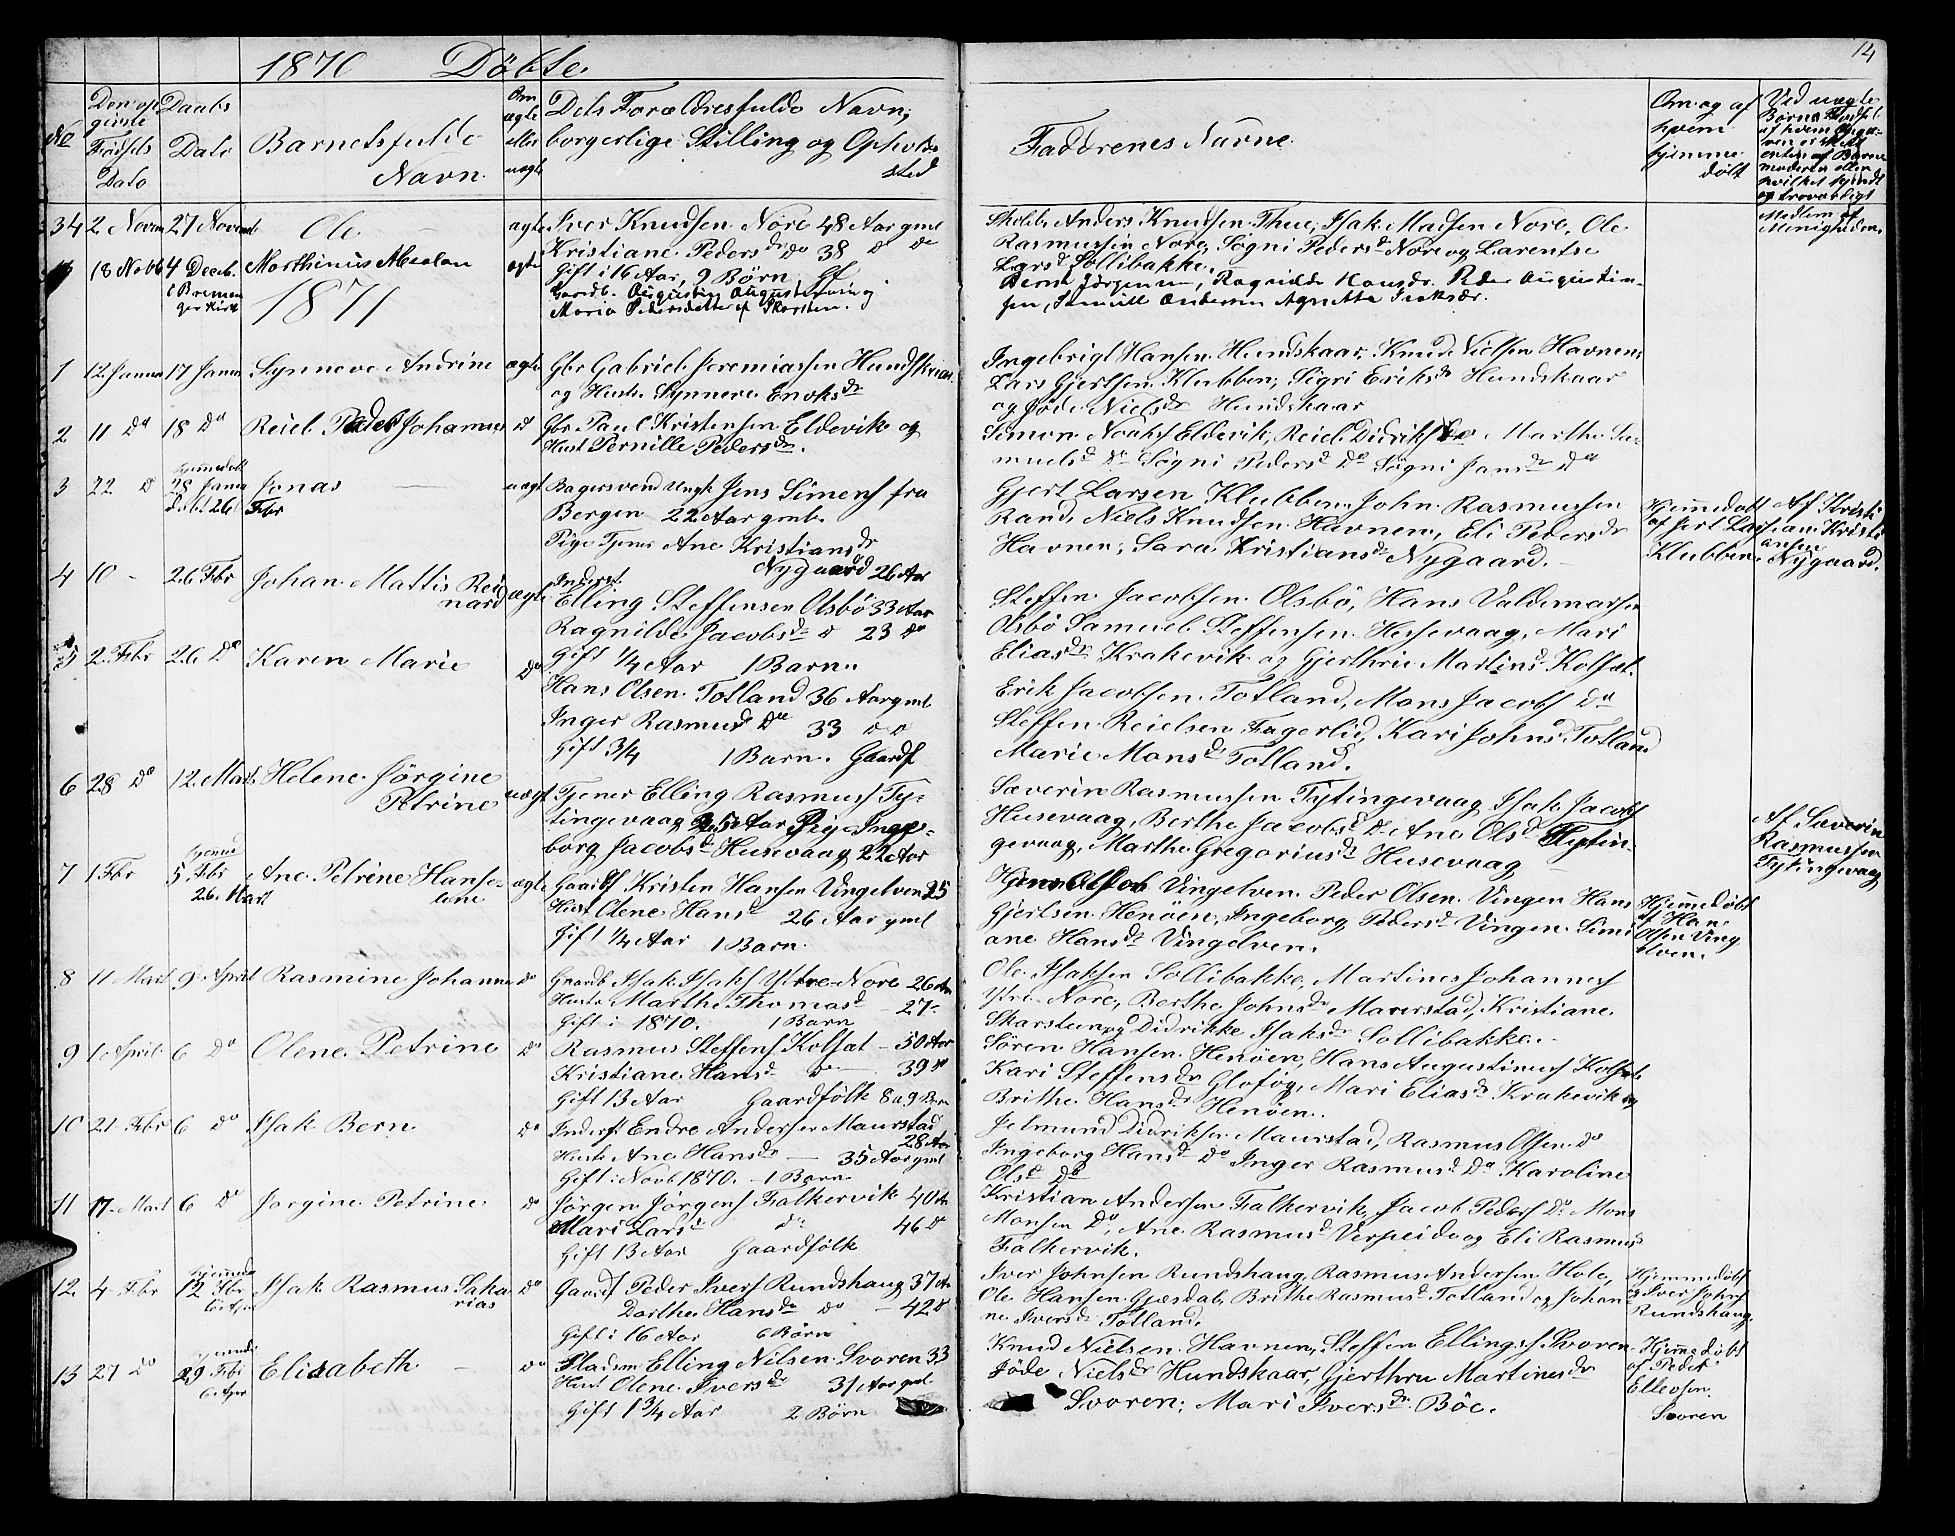 1870 Döbte
14
No
Den opgivne Födsels Dato
Daabs Dato
Barnets fulde Navn
Om ægte eller uægte
Dets Forældres fulde Navn, borgerlige Stilling og Opholdssted
Faddrenes Navne
Om og af hvem hjemmedöbt
34 2 Novm 27 Novemb Ole ægte Iver Knudsen Nore 48 Aar gml
Kristiane Pedersdr do 38 do do
Gift i 16 Aar, 9 Börn Gf
Anders Knudsen Thue, Isak Madsen Nore, Ole
Rasmussen Nore, Sogni Pedersd Nore og Larentse
Larsd Sollibakke.
18 Novb 4 Decb. Morthinus ægte
Gaardb. Augustin
Maria Skorsten.
Bernt Jörgensen, Ragnilde Hansdr. Peder Augustin-
sen,
1871
1 12 Janua 17 Janua Synneve Andrine ægte Gbr Gabriel Jeremiassen Hundskaar
og Hust. Synneve Enoksdr
Ingebrigt Hansen Hundskaar, Knud Nielsen Havnen,
Lars Gjertsen Klubben, Sigri Eriksdr Hundskaar
og Jöde Nielsdr Hundskaar
2 11 Do 18 Do Reiel Peder Johannes d Gbr Paul Kristensen Eldevik og
Hust Pernille Pedersdr.
Simon Noahs Eldevik, Reiel Didriks do Marthe Sa-
muelsd Do Sogni Pedersd Do Sogni Jansdr Do
3 22 d hjemmedöbt 28 Janua Döbt 26 Febr Jonas uægt Bagersvend Ungk Jens Simens fra
Bergen 22 Aar gml.
Pige Tjener Ane Kristiansdr
Nygaard 26 Aar
Gjert Larsen Klubben, John Rasmussen
Rand, Niels Knudsen Havnen, Eli Pedersdr
Havnen, Sara Kristiansdr Nygaard.
Hjemmedöbt
af Jert Larsen
Klubben.
Af Kristi
an Kristi
ansen
Nygaard.
4 10 - 26 Fbr Johan Mattis Rei
nard ægte Inderst
Elling Steffensen Olsbö 33 Aar
Ragnilde Jacobsdr d 23 do
Gift 1/4 Aar 1 Barn.
Steffen Jacobsen Olsbö, Hans Valdemarsen
Olsbö Samuel Steffensen Hessevaag, Mari
Eliasdr Krakevik og Gjerthrie Martinsd Kolset.
5 2 Fbr 26 Do Karen Marie Do Hans Olsen Totland 36 Aar gml
Inger Rasmusd Do 33 do
Gift 3/4 1 Barn. Gaardf
Erik Jacobsen Totland, Mons Jacobs Do
Steffen Reielsen Fagerlid, Kari Johnsd Totland
Marie Monsdr Totland.
6 28 Do 12 Marts Helene Jörgine
Petrine uægt Tjener Elling Rasmuss Ty-
tingevaag 25 Aar Pige Inge-
borg Jacobsd Husevaag 22 Aar
Severin Rasmussen Tytingevaag Isak Jacobs
Husevaag, Berthe Jacobsd Do Ane Olsd Tytin-
gevaag, Marthe Gregoriusdr Husevaag
Af Severin
Rasmussen
Tytingevaag
7 1 Fbr hjemmed 5 Fbr 26 Mart Ane Petrine Hanse-
line ægte Gaardf Kristen Hansen Vingelven 25
Hust Olene Hansd 26 Aar gml
Gift 1/4 Aar 1 Barn.
Vingelven Peder Olsen Vingen Hans
Gjertsen Henöen, Ingeborg Pedersd Vingen Simi
ane Hansdr Vingelven.
Hjemmedöbt
af Hans
Olsen Ving
elven.
8 11 Mart 9 April Rasmine Johanne do Gaardb Isak Isaks Ytre-Nore 26 Aar
Hustr Marthe Thomasd 27-
Gift i 1870. 1 Barn
Ole Isaksen Sollibakke, Martines Johannes
Ytre Nore, Berthe Johnsdr Maurstad, Kristiane
Skarsten og Didrikke Isaksdr Sollibakke.
9 1 April 6 Do Olene Petrine do Rasmus Steffens Kolset - 50 Aar
Kristiane Hansd do 39 d
Gift 13 Aar Gaardfolk 8 a 9 Brn
Sören Hansen Henöen, Hans Augustinus Kolset
Kari Steffensdr Gloföy, Mari Eliasd Krakevik og
Brithe Hansdr Henöen.
10 21 Fbr 6 Do Isak Bern Do Inderst Endre Andersen Maurstad
28 Aar
Hust Ane Hansdr - 35 Aar gml
Gift i Novb 1870. - 1 Barn
Jelmund Didriksen Maurstad, Rasmus Olsen do
Ingeborg Hansd do Inger Rasmusd Do Karoline
Olsd Do
11 17 Mart 6 Do Jorgine Petrine do Jörgen Jörgens Falkervik 40 Aar
Mari Larsd do 46 do
Gift 13 Aar Gaardfolk
Kristian Andersen Falkervik, Jacob Peders Do Mons
Monsen Do, Ane Rasmusd Verpeide og Eli Rasmus
Falkervik.
12 4 Fbr hjemmed 12 Fbr 6 Apr Isak Rasmus Saka
rias do Gaardf Peder Ivers Rundehaug 37 Aar
Dorthe Hansdr do - 42 d
Gift i 16 Aar 6 Börn
Iver Johnsen Rundehaug, Rasmus Andersen Hole,
Ole Hansen Gjesdal, Brithe Rasmusd Totland og Johan-
ne Iversdr Totland.
Hjemmedöbt
af Iver Johns
Rundehaug
13 27 Do hjemmed 29 Fbr 6 Apr Elisabeth do Pladsm Elling Nilsen Svoren 33
Hust Olene Iversdr 31 Aar gml
Gift 1 3/4 Aar 2 Börn
Knud Nielsen Havnen, Steffen Ellings Svoren
Jöde Nielsdr Hundskaar, Gjerthru Martinesdr
Svoren; Mari Iversdr Böe.
Hjemmedöbt
af Peder
Ellevsen
Svoren